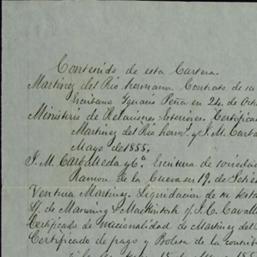 Contenido de esta Cartera.
Martinez del Rio hermanos. Contrato de su
Escribano Ignacio Peña en 24. de Oct
Ministerio de Relaciones Exteriores. Certifica
Martinez del Rio herms. y J. M. Carba
Mayo de 1855.
J. M. Carballeda y Ca. Escritura de sociedad
Ramon de la Cueva en 19. de Setie
Ventura Martinez. Liquidacion de su testa
de Manning y Mackintosh y J. C. Cavalle
Certificado de Nacionalidad de Martinez del
Certificado de pago y Boleta de la contrib